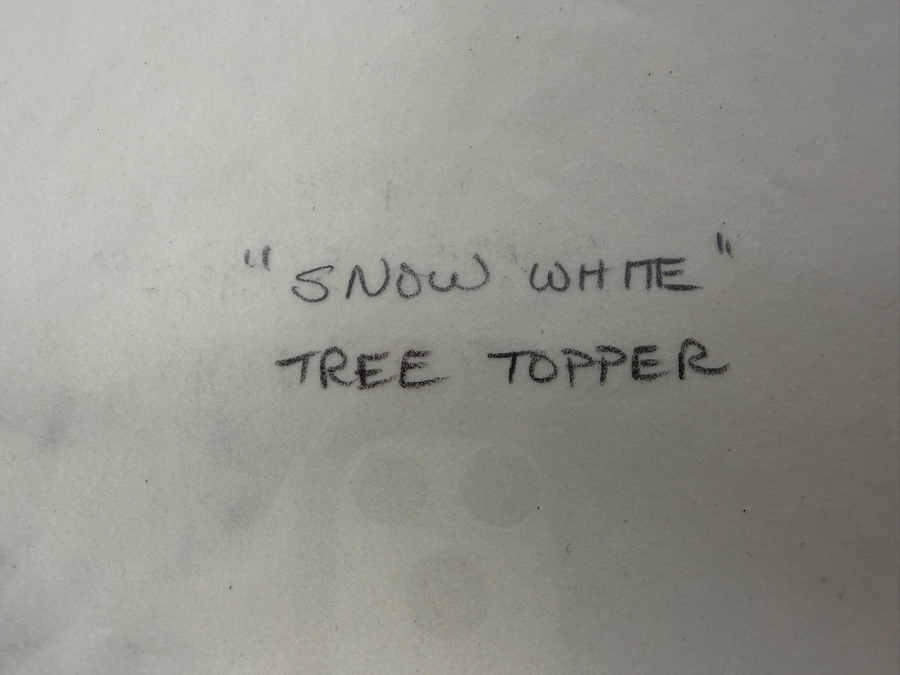 "SNOW WHITE"
TREE TOPPER